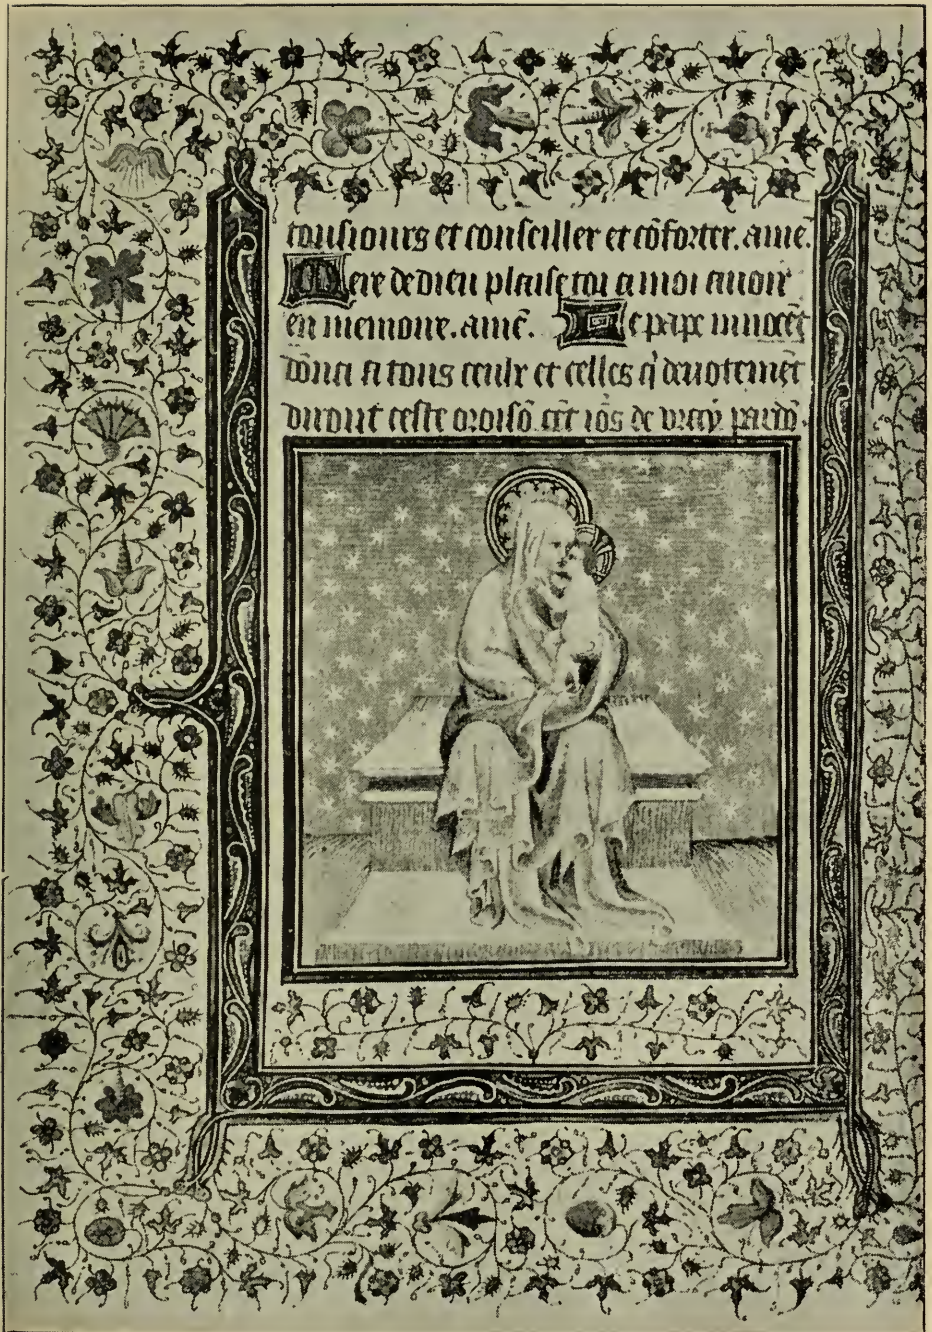 tousiours et conseiller et cōforter. ame.
Mere de dieu plaise toi a moi auoir
en memoire. amē. Le pape innocēt
dōna a tous ceulx et celles q̄ deuotemēt
diront ceste oroisō cēt iōs de vray pardō.